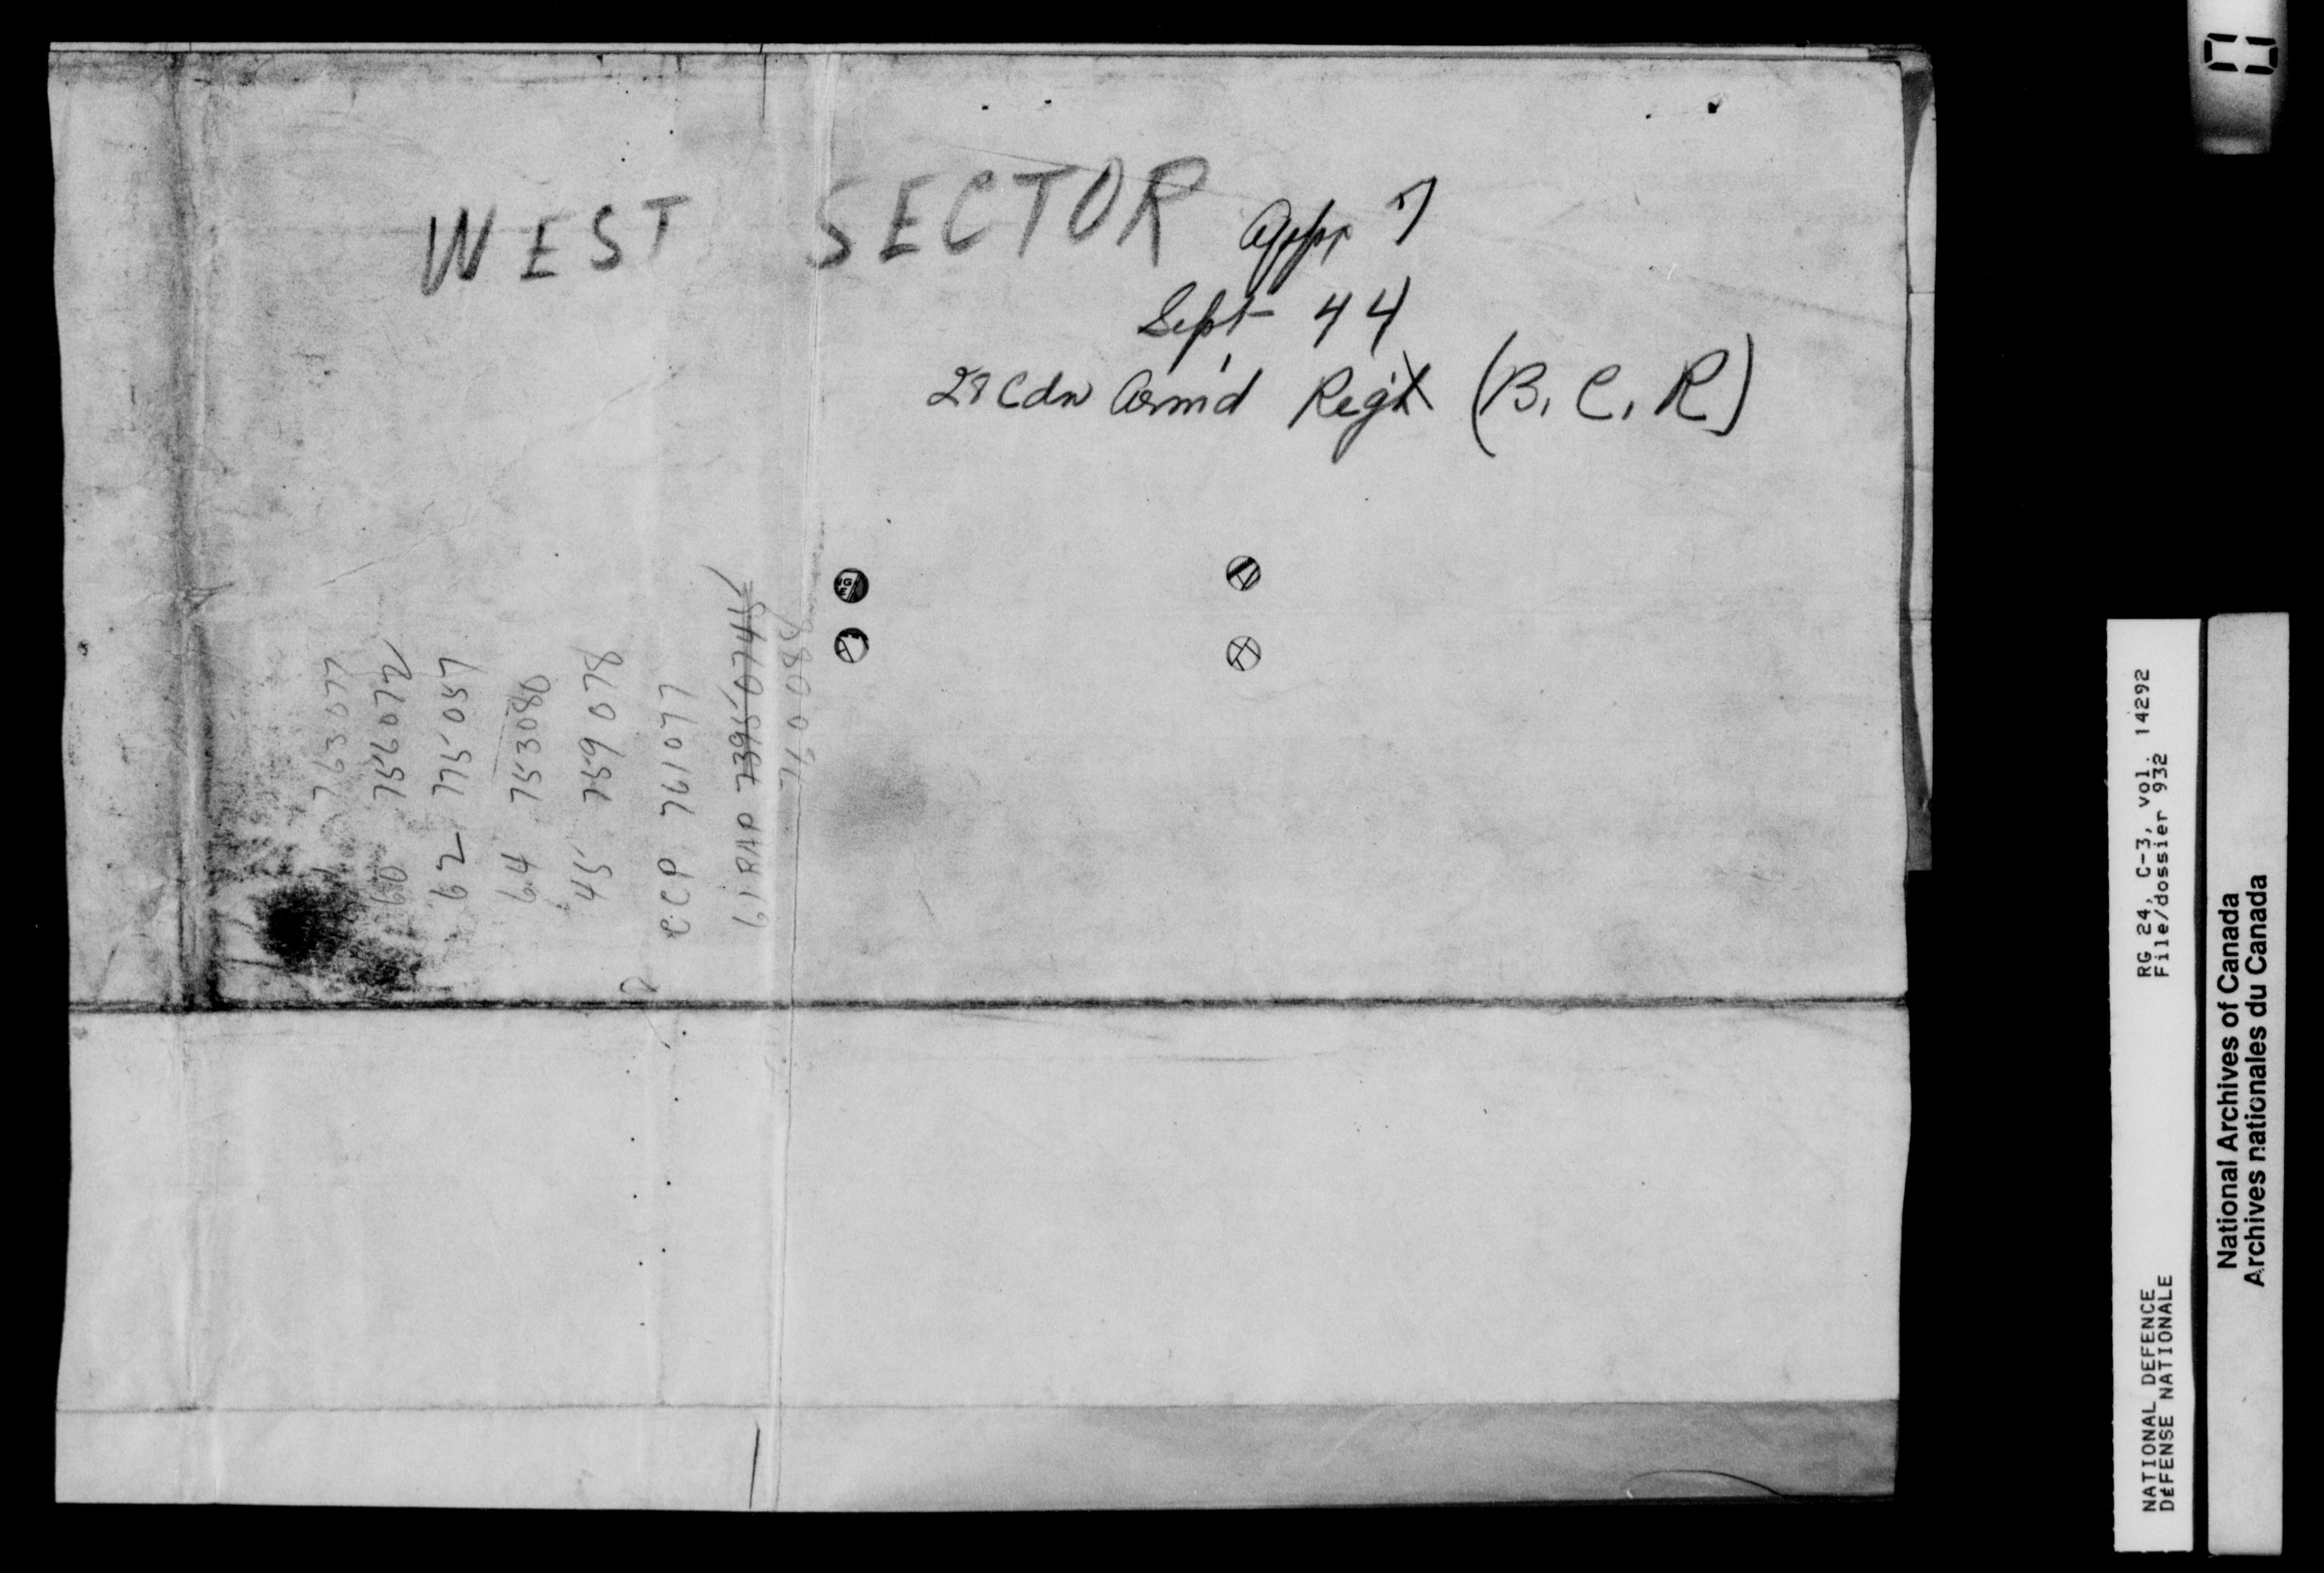 WEST SECTOR
Appx 7
Sept 44
28 Cdn Arm'd Reg't (B.C.R)
763077
60 756072
62 775057
64 753080
45 759078
CCP 761077
61 RAP 7395 0745
760088
RG 24, C-3, vol. 14292
File/dossier 932
NATIONAL DEFENCE
DÉFENSE NATIONALE
National Archives of Canada
Archives nationales du Canada